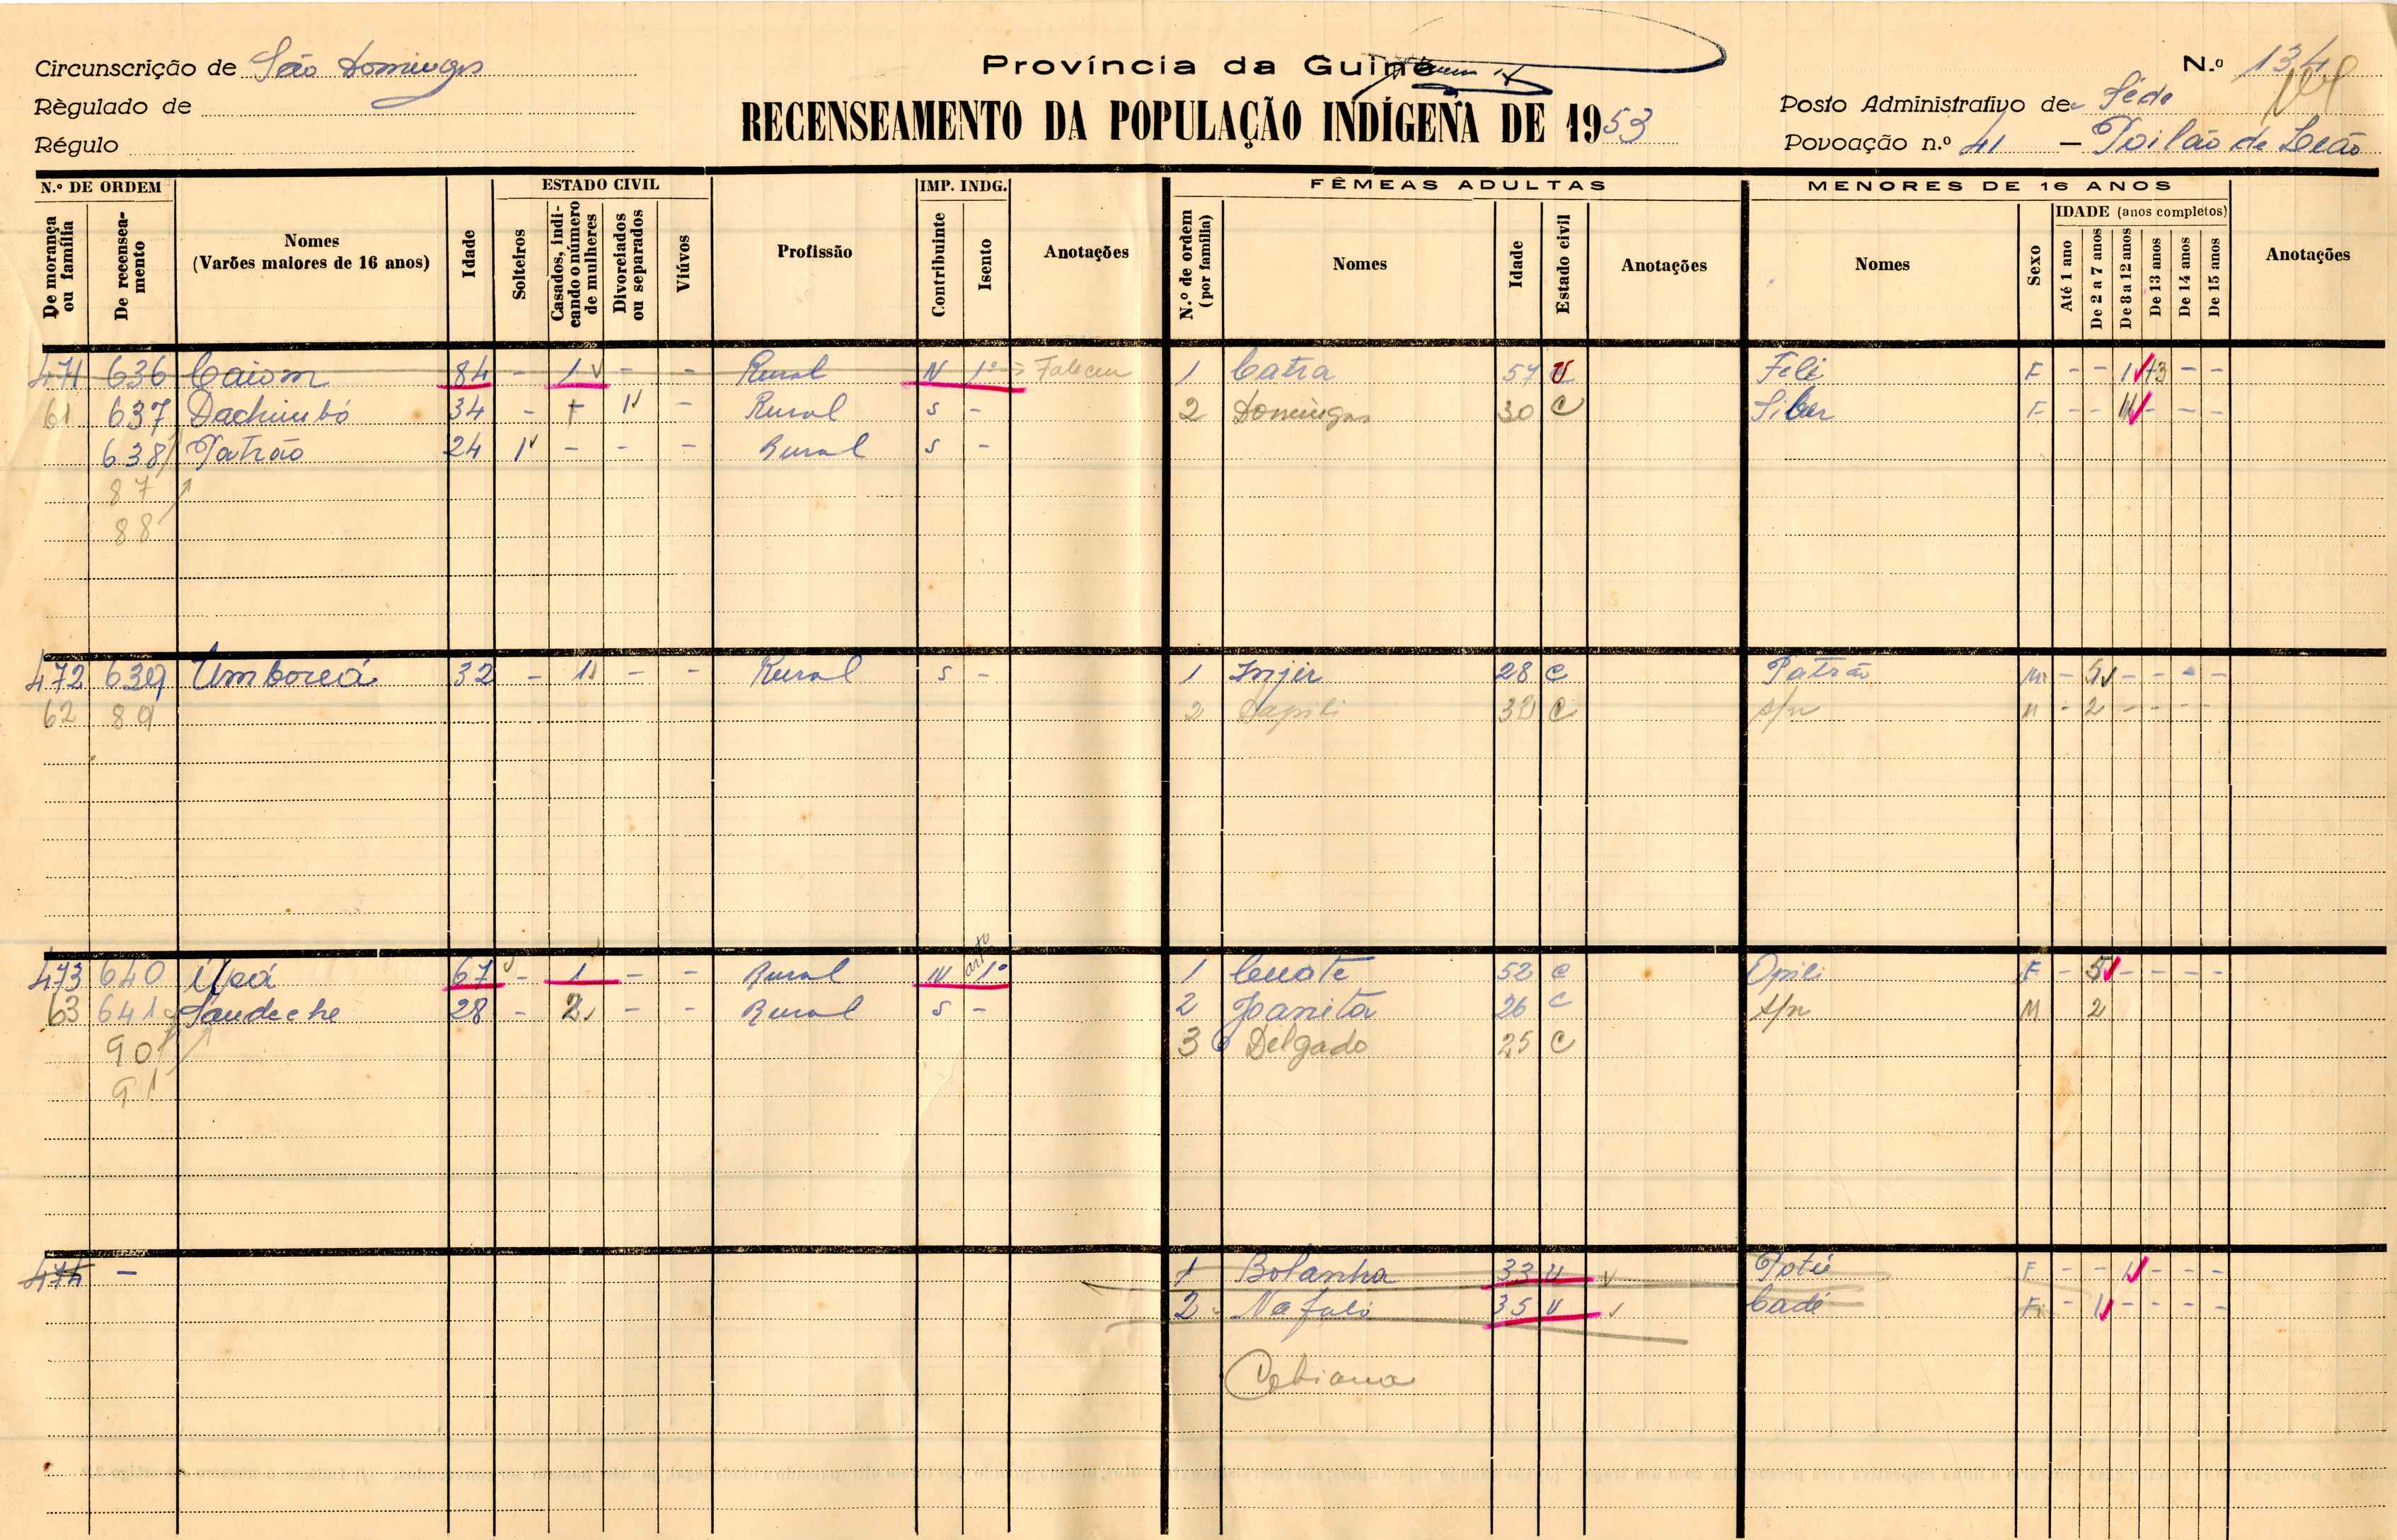 Circunscrição de São Domingos
Règulado de
Régulo
Província da Guiné
RECENSEAMENTO DA POPULAÇÃO INDÍGENA DE 1953
N.º 134
Posto Administrativo de Séde
Povoação n.º 41 — Poilão de Leão
N.º DE ORDEM
De morança ou família
De recenseamento
Nomes
(Varões maiores de 16 anos)
Idade
ESTADO CIVIL
Solteiros
Casados, indicando o número de mulheres
Divorciados ou separados
Viúvos
Profissão
IMP. INDG.
Contribuinte
Isento
Anotações
FÊMEAS ADULTAS
N.º de ordem (por família)
Nomes
Idade
Estado civil
Anotações
MENORES DE 16 ANOS
Nomes
Sexo
IDADE (anos completos)
Até 1 ano
De 2 a 7 anos
De 8 a 12 anos
De 13 anos
De 14 anos
De 15 anos
Anotações
471 636 Caiom 84 - 1 - - Rural N 1º Faleceu 1 Catra 57 V Feli F - - 1 13 - -
61 637 Dachimbó 34 - 1 - Rural S - 2 Domingas 30 C Siber F - - - - -
638 Patrão 24 1 - - - Rural S -
87
88
472 639 Umboreá 32 - 1 - - Rural S - 1 Injir 28 C Patrão M - 5 - - - -
62 89 2 Sapili 30 C s/n M - 2 - - - -
473 640 67 - 1 - - Rural N artº 1º 1 Cuote 52 C Opili F - 5 - - - -
63 641 Saudeche 28 - 2 - - Rural S - 2 Joanita 26 C s/n M 2
90 3 Delgado 25 C
91
474 - 1 Bolanha 33 V Potié F - - 1 - - -
2 Na fuló 35 V Cadé F - 1 - - - -